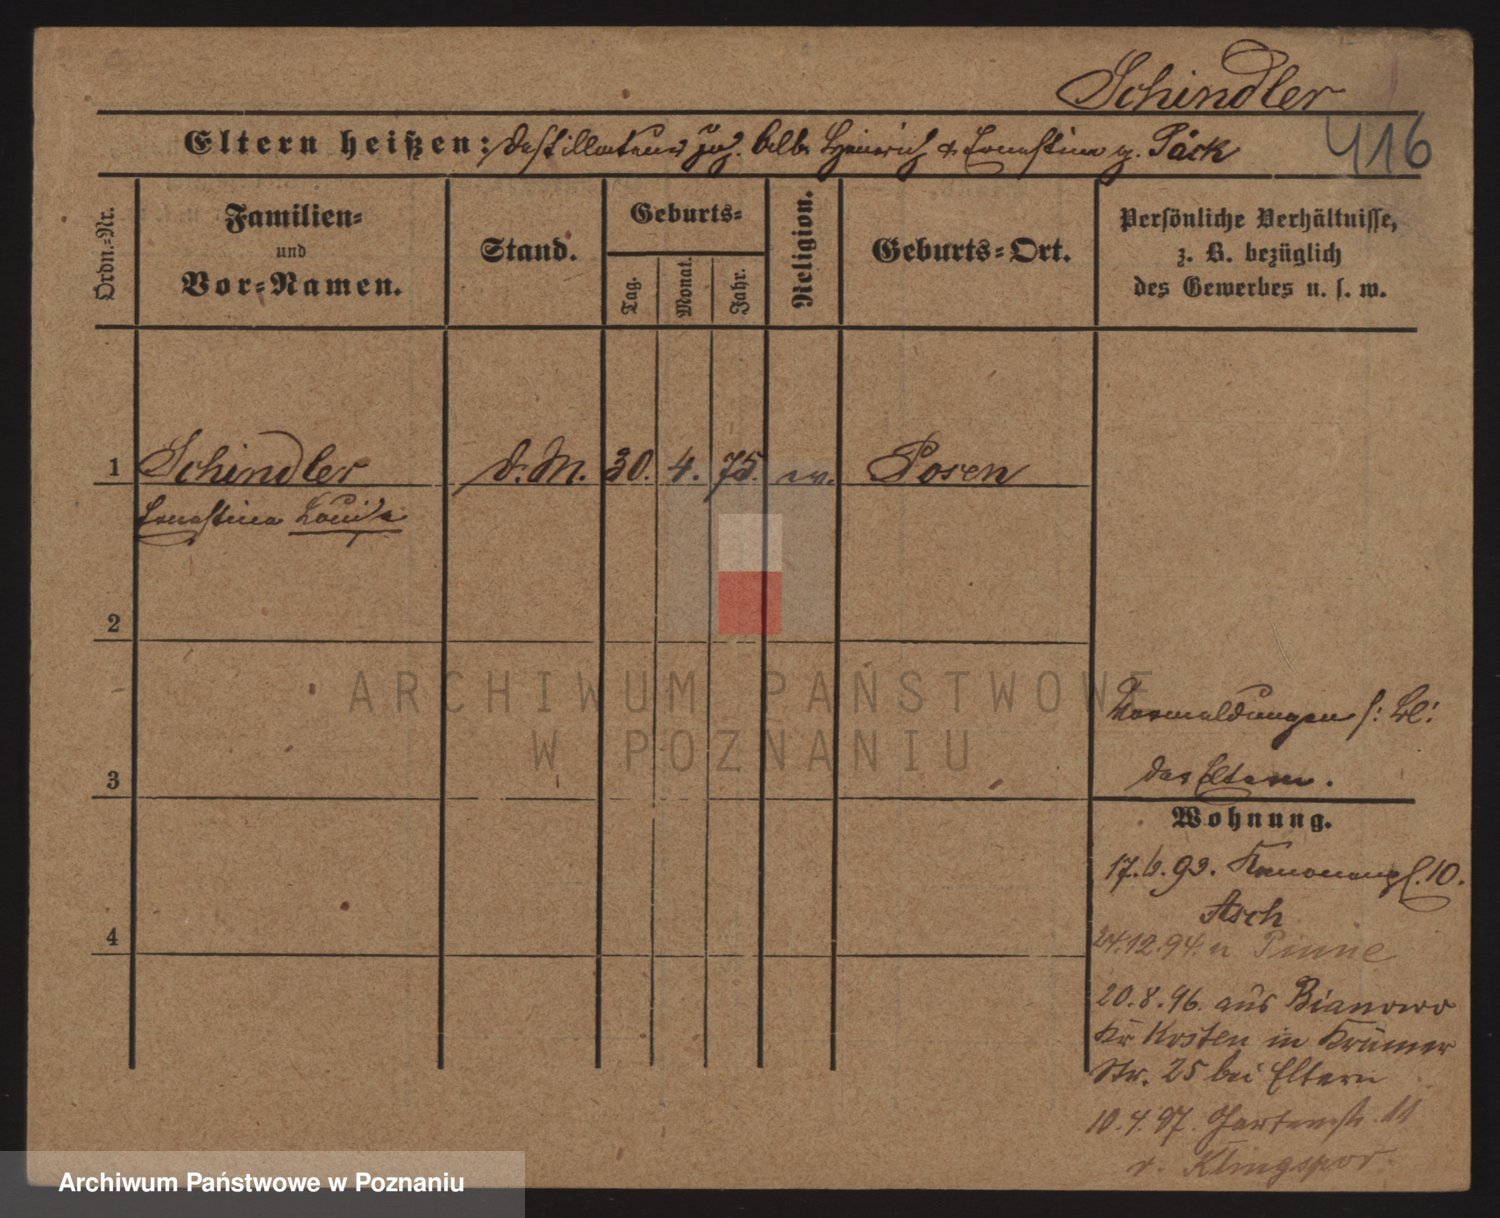 Schindler
416
Eltern heißen: Destillateur Joh. Alb. Heinrich & Ernestine g. Päck
Ordn.=Nr.
Familien=
und
Vor=Namen.
Stand.
Geburts=
Tag.
Monat.
Jahr.
Religion.
Geburts=Ort.
Persönliche Verhältnisse,
z. B. bezüglich
des Gewerbes u. s. w.
1 Schindler d. M. 30. 4. 75. ev. Posen
Ernestine Louise
2
3
4
Vormeldungen s: Bl:
der Eltern.
Wohnung.
17.6.93. Kanonenpl. 10.
Asch
24.12.94. n Pinne
20.8.96. aus Bianowo
Kr Kosten in Krämer
Str. 25 bei Eltern
10.4.97. Gartenstr. 11
v. Klingspor.
ARCHIWUM PAŃSTWOWE
W POZNANIU
Archiwum Państwowe w Poznaniu